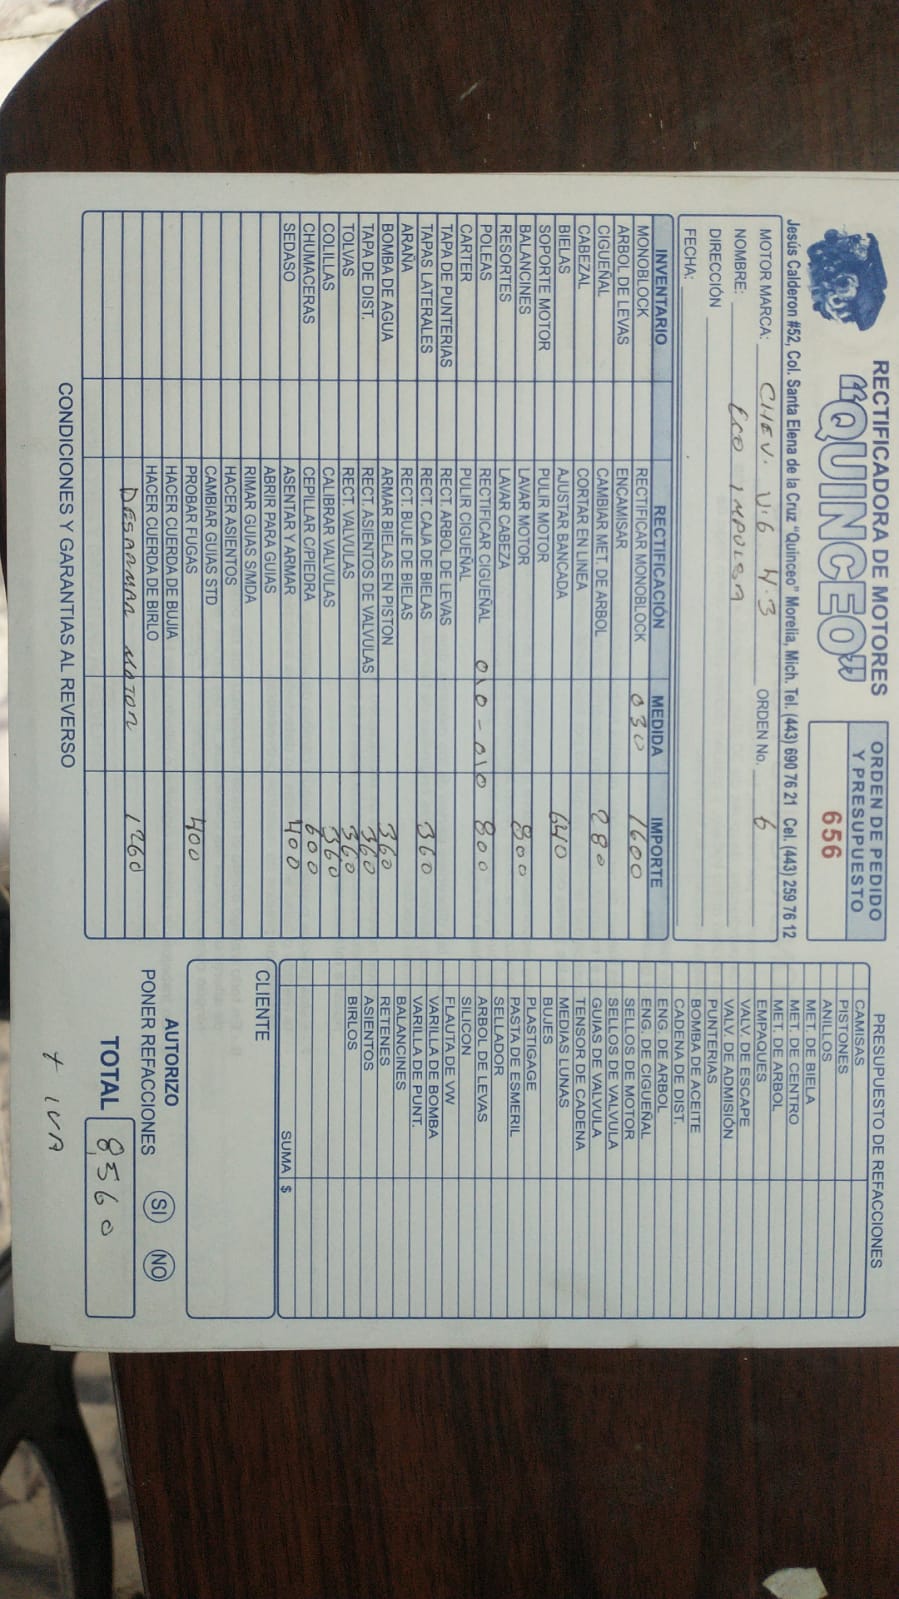 RECTIFICADORA DE MOTORES
"QUINCEO"
ORDEN DE PEDIDO
Y PRESUPUESTO
656
Jesús Calderon #52, Col. Santa Elena de la Cruz "Quinceo" Morelia, Mich. Tel. (443) 690 76 21 Cel. (443) 259 76 12
MOTOR MARCA: CHEV. V.6 4.3 ORDEN No. 6
NOMBRE: ECO IMPULSA
DIRECCIÓN
FECHA:
INVENTARIO RECTIFICACIÓN MEDIDA IMPORTE
MONOBLOCK RECTIFICAR MONOBLOCK 030 1600
ARBOL DE LEVAS ENCAMISAR
CIGUEÑAL CAMBIAR MET. DE ARBOL 280
CABEZAL CORTAR EN LINEA
BIELAS AJUSTAR BANCADA 640
SOPORTE MOTOR PULIR MOTOR
BALANCINES LAVAR MOTOR 800
RESORTES LAVAR CABEZA
POLEAS RECTIFICAR CIGUEÑAL 010-010 800
CARTER PULIR CIGUEÑAL
TAPA DE PUNTERIAS RECT. ARBOL DE LEVAS
TAPAS LATERALES RECT. CAJA DE BIELAS 360
ARAÑA RECT. BUJE DE BIELAS
BOMBA DE AGUA ARMAR BIELAS EN PISTON 360
TAPA DE DIST. RECT. ASIENTOS DE VALVULAS 360
TOLVAS RECT. VALVULAS 360
COLILLAS CALIBRAR VALVULAS 360
CHUMACERAS CEPILLAR C/PIEDRA 600
SEDASO ASENTAR Y ARMAR 400
ABRIR PARA GUIAS
RIMAR GUIAS S/MDA
HACER ASIENTOS
CAMBIAR GUIAS STD
PROBAR FUGAS 400
HACER CUERDA DE BUJIA
HACER CUERDA DE BIRLO
DESARMAR MOTOR 1260
CONDICIONES Y GARANTIAS AL REVERSO
PRESUPUESTO DE REFACCIONES
CAMISAS
PISTONES
ANILLOS
MET. DE BIELA
MET. DE CENTRO
MET. DE ARBOL
EMPAQUES
VALV. DE ESCAPE
VALV. DE ADMISIÓN
PUNTERIAS
BOMBA DE ACEITE
CADENA DE DIST.
ENG. DE ARBOL
ENG. DE CIGUEÑAL
SELLOS DE MOTOR
SELLOS DE VALVULA
GUIAS DE VALVULA
TENSOR DE CADENA
MEDIAS LUNAS
BUJES
PLASTIGAGE
PASTA DE ESMERIL
SELLADOR
ARBOL DE LEVAS
SILICON
FLAUTA DE VW
VARILLA DE BOMBA
VARILLA DE PUNT.
BALANCINES
RETENES
ASIENTOS
BIRLOS
SUMA $
CLIENTE
AUTORIZO
PONER REFACCIONES SI NO
TOTAL 8,560
+ IVA